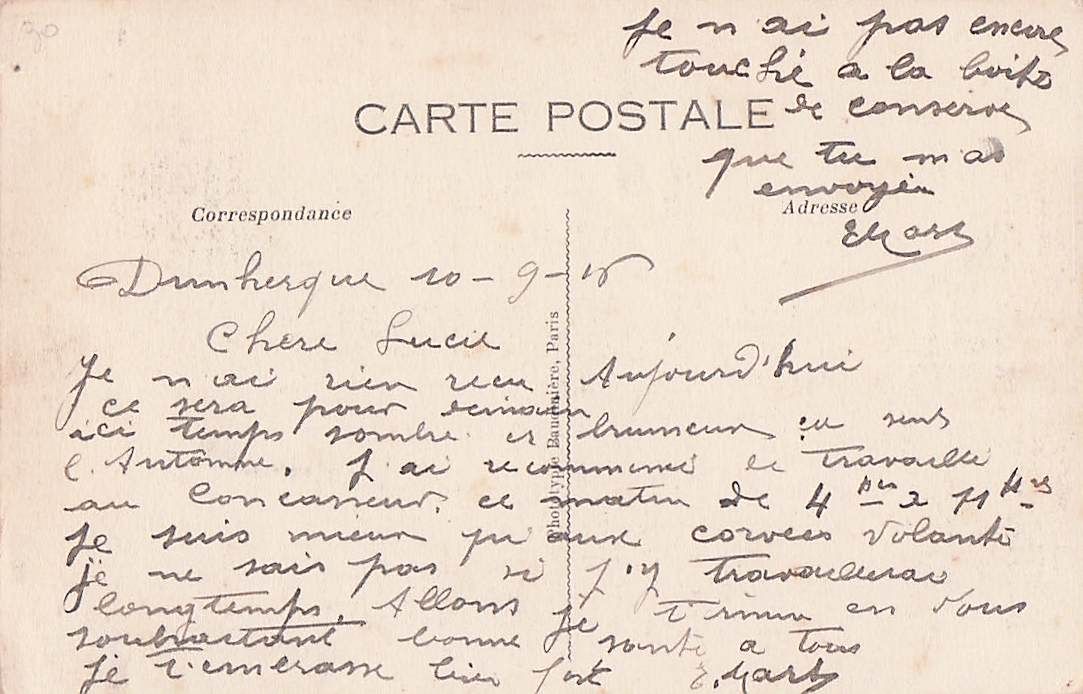 30
Je n ai pas encore
touché a la boite
de conserve
que tu m as
envoyée
CARTE POSTALE
Correspondance
Adresse
Dunkerque 10-9-16
Chere Lucie
Je n ai rien recu Aujourd'hui
ce sera pour demain
ici temps sombre et brumeux ca sens
l'Automne. J ai recommencé le travaille
au Concasseur, ce matin de 4 hres a 11 hres
Je suis mieux qu aux corvées volante
je ne sais pas si j'y travaillerai
longtemps. Allons je termine en vous
souhaitant bonne santé a tous
je t'emerasse bien fort E.
Phototypie Baudinière, Paris